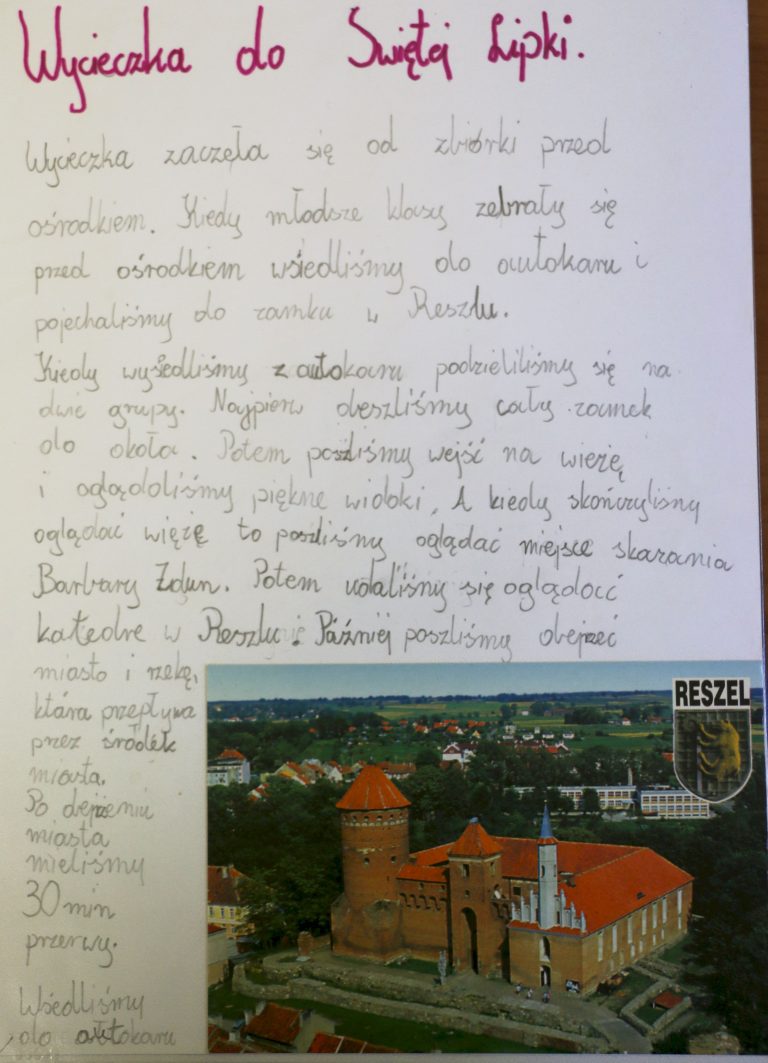 Wycieczka do Świętej Lipki.
Wycieczka zaczęła się od zbiórki przed
ośrodkiem. Kiedy młodsze klasy zebrały się
przed ośrodkiem wsiedliśmy do autokaru i
pojechaliśmy do zamku w Reszlu.
Kiedy wysiedliśmy z autokaru podzieliliśmy się na
dwie grupy. Najpierw obeszliśmy cały zamek
do okoła. Potem poszliśmy wejść na wieżę
i oglądaliśmy piękne widoki. A kiedy skończyliśmy
oglądać wieżę to poszliśmy oglądać miejsce skazania
Barbary Zdun. Potem udaliśmy się oglądać
katedre w Reszlu. Później poszliśmy obejrzeć
miasto i rzekę,
która przepływa
przez środek
miasta.
Po obejrzeniu
miasta
mieliśmy
30 min
przerwy.
Wsiedliśmy
do autokaru
RESZEL